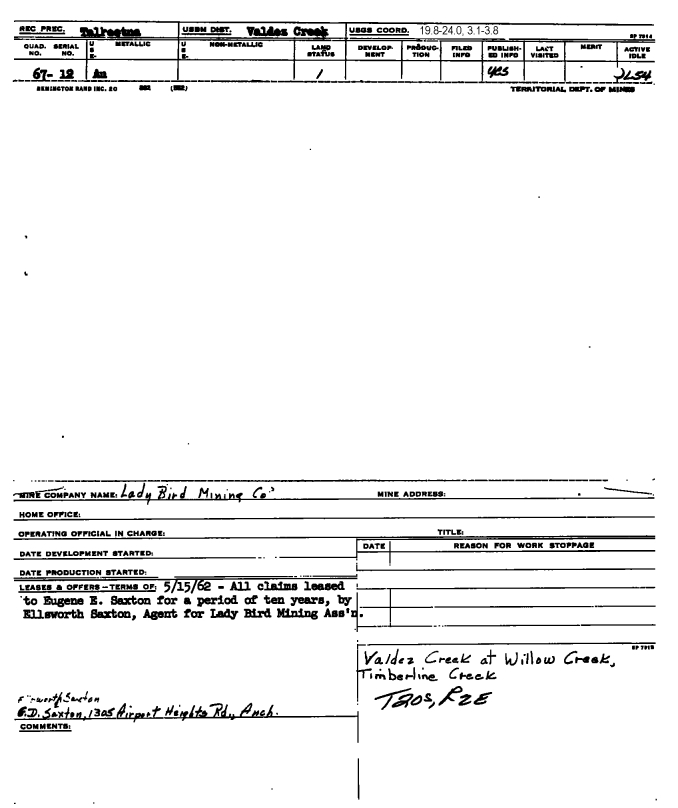 REC PREC. Talkeetna USBM DIST. Valdez Creek USGS COORD. 19.8-24.0, 3.1-3.8
SP 7014
QUAD. NO. SERIAL NO. USE- METALLIC USE- NON-METALLIC LAND STATUS DEVELOP-MENT PRODUC-TION FILED INFO PUBLISH-ED INFO LAST VISITED MERIT ACTIVE IDLE
67- 12 Au / yes
REMINGTON RAND INC. 20 882 (882) TERRITORIAL DEPT. OF MINES
MINE COMPANY NAME: Lady Bird Mining Co. MINE ADDRESS:
HOME OFFICE:
OPERATING OFFICIAL IN CHARGE: TITLE:
DATE REASON FOR WORK STOPPAGE
DATE DEVELOPMENT STARTED:
DATE PRODUCTION STARTED:
LEASES & OFFERS - TERMS OF: 5/15/62 - All claims leased
to Eugene E. Saxton for a period of ten years, by
Ellsworth Saxton, Agent for Lady Bird Mining Ass'n.
SP 7015
Valdez Creek at Willow Creek,
Timberline Creek
T20S, R2E
Ellsworth Saxton
E.D. Saxton, 1305 Airport Heights Rd., Anch.
COMMENTS: